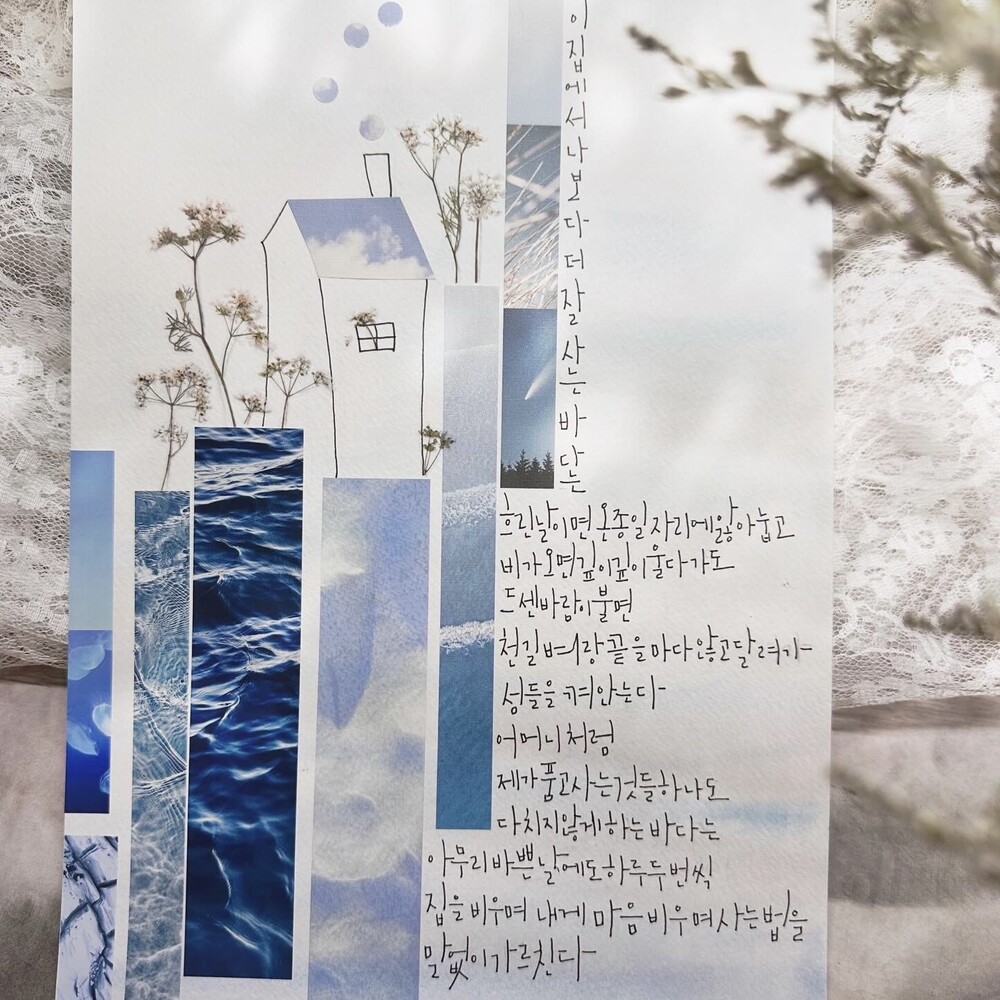 이 집에서 나보다 더 잘 사는 바다는
흐린 날이면 온종일 자리에 앓아눕고
비가 오면 깊이깊이 울다가도
드센 바람이 불면
천길 벼랑 끝을 마다않고 달려가
섬들을 껴안는다
어머니처럼
제가 품고 사는 것들 하나도
다치지 않게 하는 바다는
아무리 바쁜 날에도 하루 두 번씩
집을 비우며 내게 마음 비우며 사는 법을
말없이 가르친다